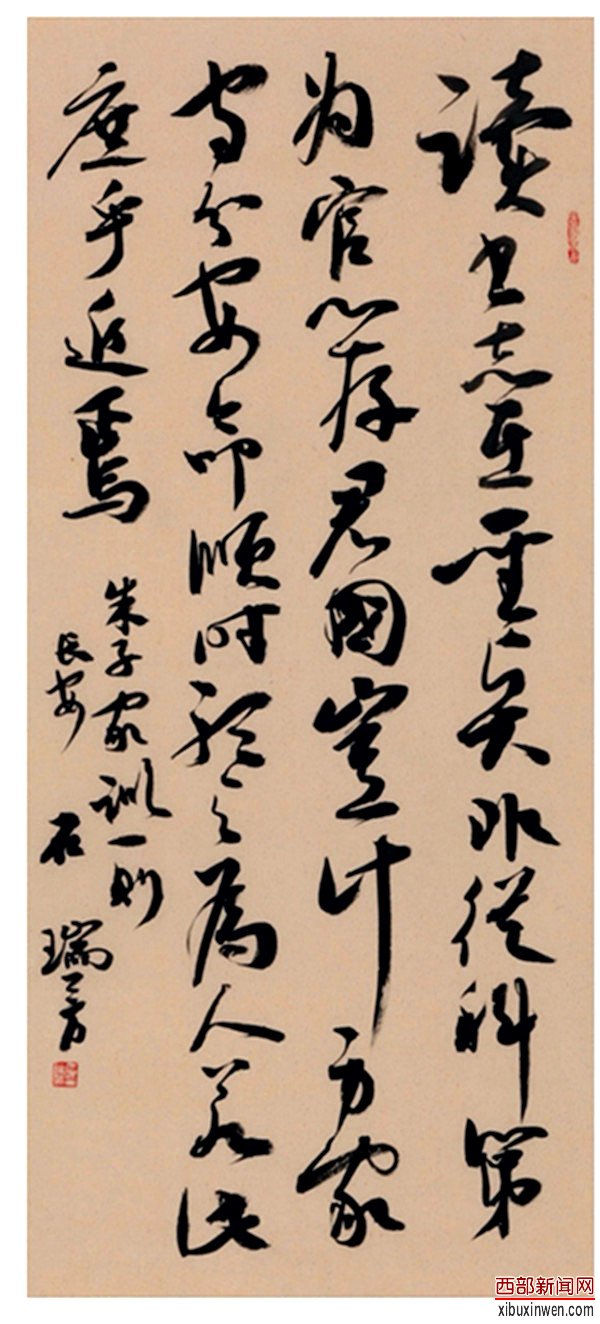 读书志在圣贤非徒科第
为官心存君國豈计身家
守分安命顺时听天為人若此
庶乎近焉
朱子家训一则
长安 石瑞芳
西部新闻网
xibuxinwen.com